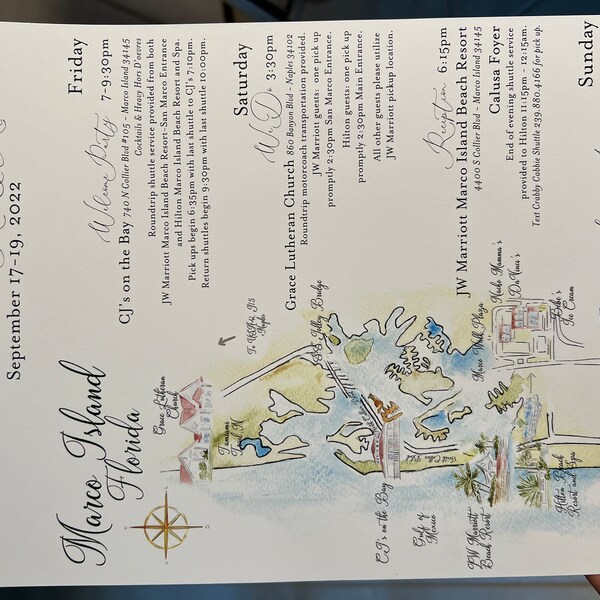 September 17-19, 2022
Friday
Welcome Party 7-9:30pm
CJ's on the Bay 740 N Collier Blvd #105 - Marco Island 34145
Cocktails & Heavy Hors D'oevres
Roundtrip shuttle service provided from both
JW Marriott Marco Island Beach Resort-San Marco Entrance
and Hilton Marco Island Beach Resort and Spa.
Pick ups begin 6:35pm with last shuttle to CJ's 7:10pm.
Return shuttles begin 9:30pm with last shuttle 10:00pm.
Saturday
We Do 3:30pm
Grace Lutheran Church 860 Banyon Blvd - Naples 34102
Roundtrip motorcoach transportation provided.
JW Marriott guests: one pick up
promptly 2:30pm San Marco Entrance.
Hilton guests: one pick up
promptly 2:30pm Main Entrance.
All other guests please utilize
JW Marriott pickup location.
Reception 6:15pm
JW Marriott Marco Island Beach Resort
4400 S Collier Blvd - Marco Island 34145
Calusa Foyer
End of evening shuttle service
provided to Hilton 11:15pm - 12:15am.
Text Crabby Cabbie Shuttle 239.880.4166 for pick up.
Sunday
Marco Island
Florida
Grace Lutheran
Church
Tamiami
Trail N
SS Jolley Bridge
CJ's on the Bay
Gulf of
Mexico
Marco Walk Plaza
DaVinci's
Ice Cream
JW Marriott
Beach Resort
Hilton Beach
Resort and Spa